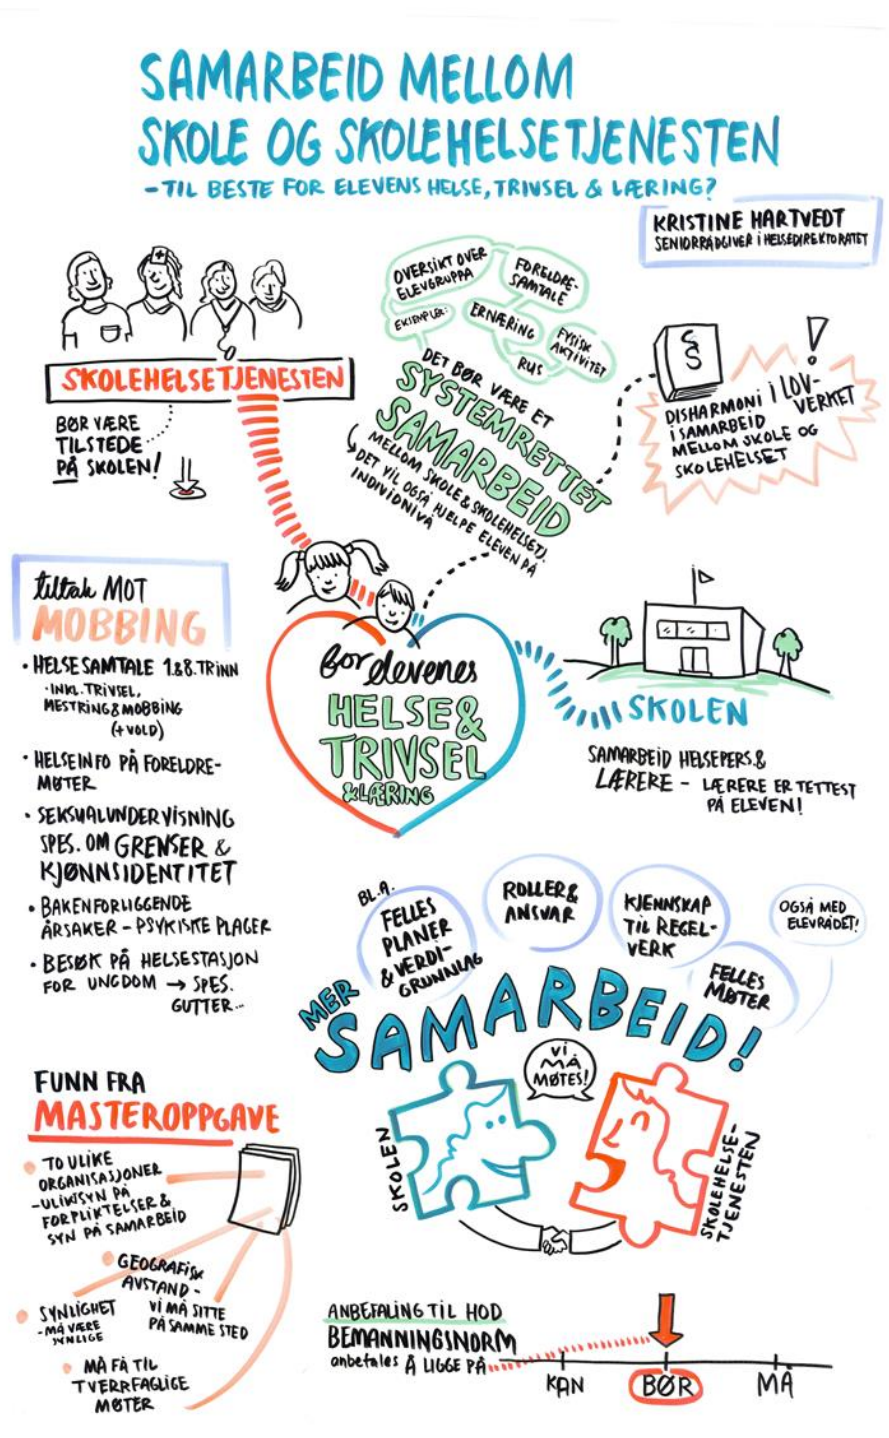 SAMARBEID MELLOM
SKOLE OG SKOLEHELSETJENESTEN
-TIL BESTE FOR ELEVENS HELSE, TRIVSEL & LÆRING?
KRISTINE HARTVEDT
SENIORRÅDGIVER I HELSEDIREKTORATET
SKOLEHELSETJENESTEN
BØR VÆRE
TILSTEDE
PÅ SKOLEN!
OVERSIKT OVER
ELEVGRUPPA
FORELDRE-
SAMTALE
EKSEMPLER:
ERNÆRING
RUS
FYSISK
AKTIVITET
DET BØR VÆRE ET
SYSTEMRETTET
SAMARBEID
MELLOM SKOLE & SKOLEHELSETJ.
DET VIL OGSÅ HJELPE ELEVEN PÅ
INDIVIDNIVÅ
§
!
DISHARMONI I LOV-
VERKET
I SAMARBEID
MELLOM SKOLE OG
SKOLEHELSET
tiltak MOT
MOBBING
· HELSESAMTALE 1.&8. TRINN
· INKL. TRIVSEL,
MESTRING & MOBBING
(+ VOLD)
· HELSEINFO PÅ FORELDRE-
MØTER
· SEKSUALUNDERVISNING
SPES. OM GRENSER &
KJØNNSIDENTITET
· BAKENFORLIGGENDE
ÅRSAKER - PSYKISKE PLAGER
· BESØK PÅ HELSESTASJON
FOR UNGDOM → SPES.
GUTTER...
for elevenes
HELSE &
TRIVSEL
& LÆRING
SKOLEN
SAMARBEID HELSEPERS. &
LÆRERE - LÆRERE ER TETTEST
PÅ ELEVEN!
BL.A.
FELLES
PLANER
& VERDI-
GRUNNLAG
ROLLER &
ANSVAR
KJENNSKAP
TIL REGEL-
VERK
FELLES
MØTER
OGSÅ MED
ELEVRÅDET!
MER
SAMARBEID!
VI
MÅ
MØTES!
SKOLEN
SKOLEHELSE-
TJENESTEN
FUNN FRA
MASTEROPPGAVE
TO ULIKE
ORGANISASJONER
- ULIKT SYN PÅ
FORPLIKTELSER &
SYN PÅ SAMARBEID
GEOGRAFISK
AVSTAND -
VI MÅ SITTE
PÅ SAMME STED
SYNLIGHET
- MÅ VÆRE
SYNLIGE
MÅ FÅ TIL
TVERRFAGLIGE
MØTER
ANBEFALING TIL HOD
BEMANNINGSNORM
anbefales Å LIGGE PÅ
KAN
BØR
MÅ